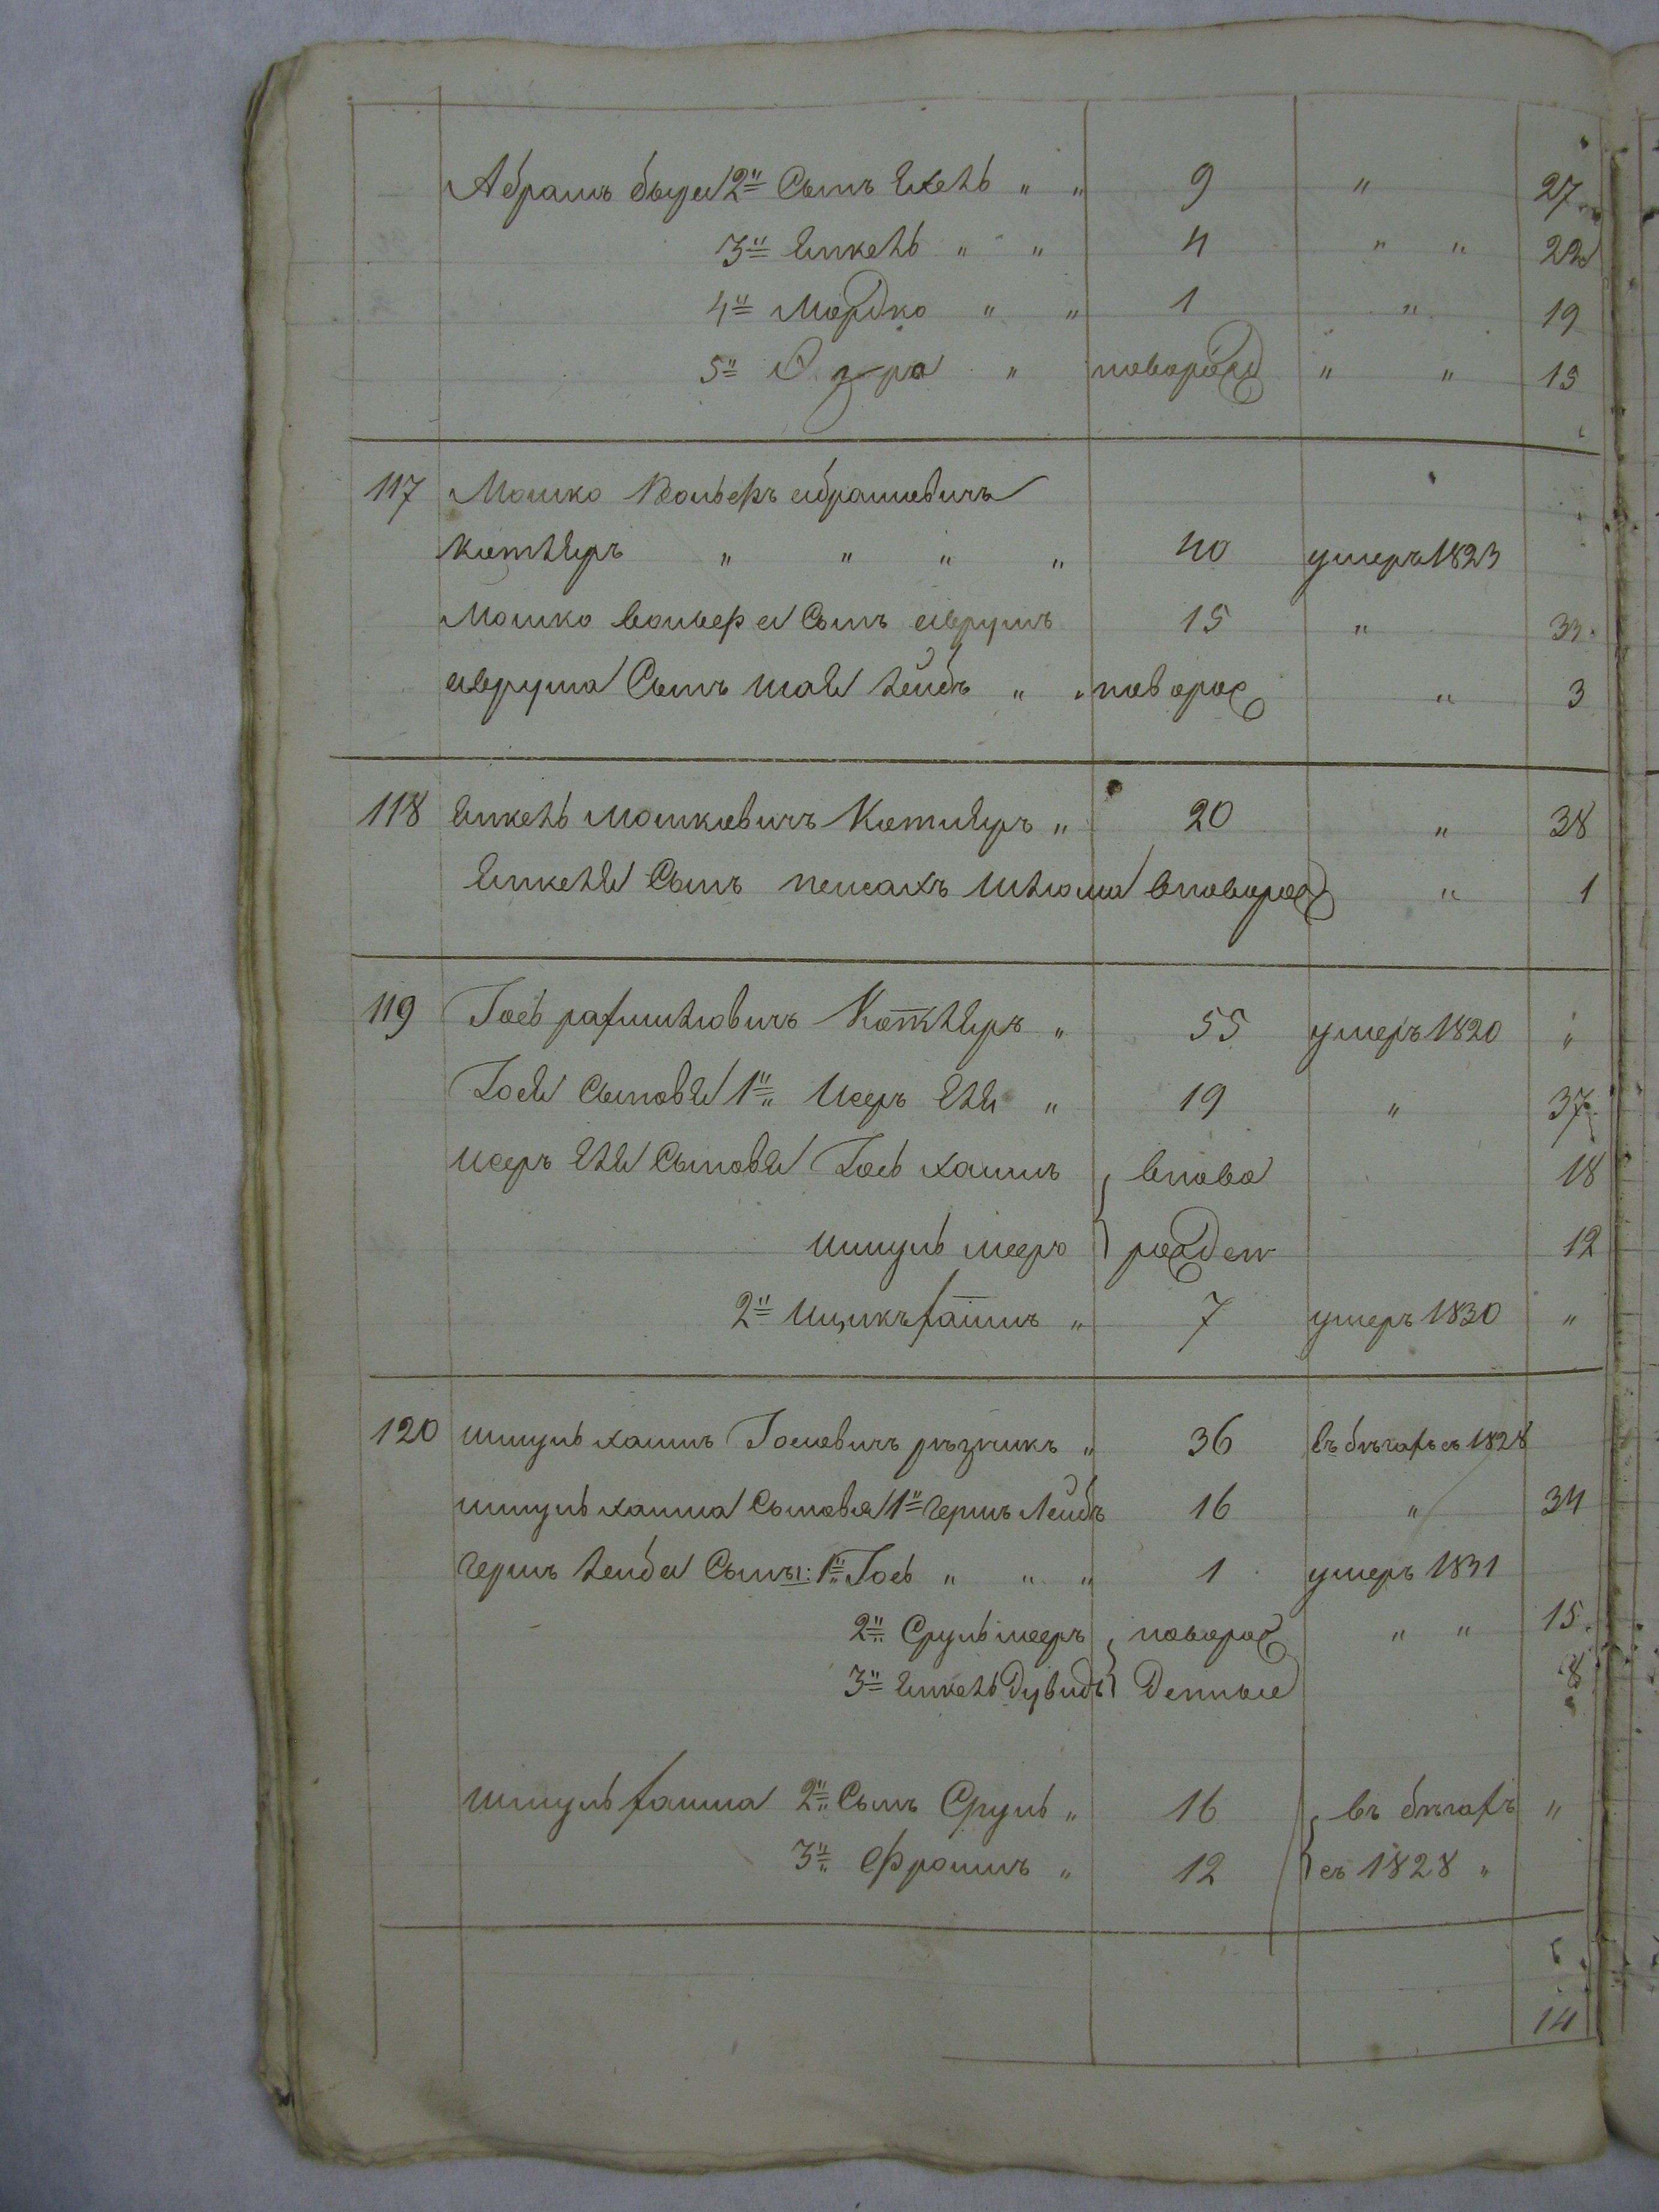 Абрамъ быра 2й Сынъ Ехель " " 9 " 27
3й Янкель " " 4 " " 22
4й Мордко " " 1 " 19
5й Озра "новорожд " " 15
117 Мошко Вольфъ абрамовичъ
Котляръ " " " " 40 умеръ 1823
Мошко вольфа Сынъ аврумъ 15 " 33
аврума Сынъ шая лейбъ " " новорож " 3
118 Янкель Мошковичъ Котляръ " 20 " 38
Янкеля Сынъ пейсахъ шлюма вноворож " 1
119 Іось рафииловичъ Котляръ " 55 умеръ 1820 "
Іося Сыновя 1й Исеръ Еля " 19 " 37
Исеръ Еля Сыновя Іось хаимъ вново 18
шмуль мееръ рожден 12
2й Ицикъ хаимъ " 7 умеръ 1830 "
120 шмуль хаимъ Іосиовичъ рѣзникъ " 36 въ бѣгахъ съ 1828
шмуль хаима Сыновя 1й Гершъ Лейбъ 16 " 34
Гершъ лейба Сыны: 1й Іось " " " 1 умеръ 1831
2й Сруль мееръ новорож " " 15
3й Янкель Дувидъ денные 8
шмуль хаима 2й Сынъ Сруль " 16 въ бѣгахъ "
3й Фроимъ " 12 съ 1828 "
14